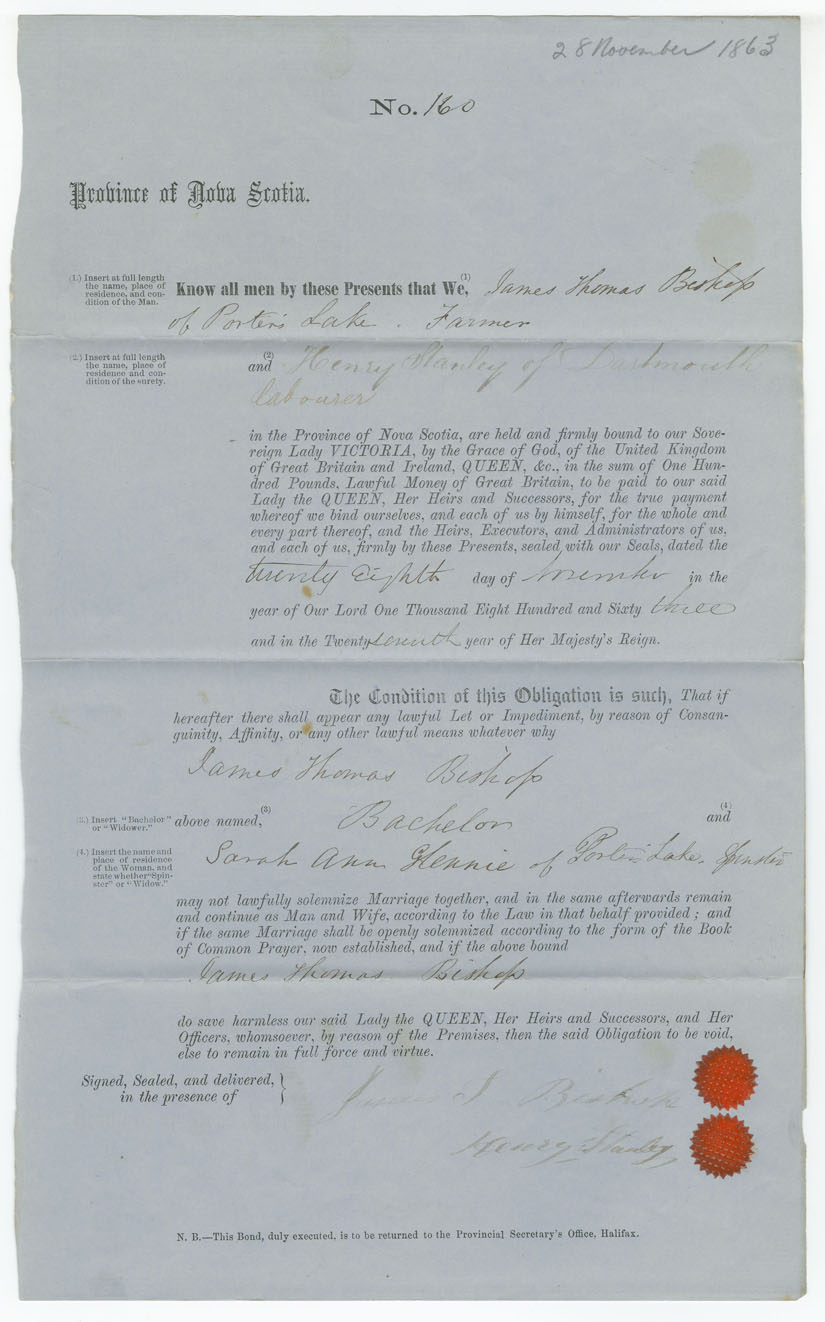 28 November 1863
No. 160
Province of Nova Scotia.
(1.) Insert at full length
the name, place of
residence, and con-
dition of the Man.
Know all men by these Presents that We,(1) James Thomas Bishop
of Porter's Lake. Farmer
(2.) Insert at full length
the name, place of
residence and con-
dition of the surety.
and(2) Henry Stanley of Dartmouth
labourer
in the Province of Nova Scotia, are held and firmly bound to our Sove-
reign Lady VICTORIA, by the Grace of God, of the United Kingdom
of Great Britain and Ireland, QUEEN, &c., in the sum of One Hun-
dred Pounds, Lawful Money of Great Britain, to be paid to our said
Lady the QUEEN, Her Heirs and Successors, for the true payment
whereof we bind ourselves, and each of us by himself, for the whole and
every part thereof, and the Heirs, Executors, and Administrators of us,
and each of us, firmly by these Presents, sealed with our Seals, dated the
twenty Eighth day of November in the
year of Our Lord One Thousand Eight Hundred and Sixty three
and in the Twenty seventh year of Her Majesty's Reign.
The Condition of this Obligation is such, That if
hereafter there shall appear any lawful Let or Impediment, by reason of Consan-
guinity, Affinity, or any other lawful means whatever why
James Thomas Bishop
(3.) Insert "Bachelor"
or "Widower."
above named,(3) Bachelor and(4)
(4.) Insert the name and
place of residence
of the Woman, and
state whether "Spin-
ster" or "Widow."
Sarah Ann Glennie of Porters Lake. Spinster
may not lawfully solemnize Marriage together, and in the same afterwards remain
and continue as Man and Wife, according to the Law in that behalf provided; and
if the same Marriage shall be openly solemnized according to the form of the Book
of Common Prayer, now established, and if the above bound
James Thomas Bishop
do save harmless our said Lady the QUEEN, Her Heirs and Successors, and Her
Officers, whomsoever, by reason of the Premises, then the said Obligation to be void,
else to remain in full force and virtue.
Signed, Sealed, and delivered,
in the presence of
James T Bishop
Henry Stanley
N. B.—This Bond, duly executed, is to be returned to the Provincial Secretary's Office, Halifax.